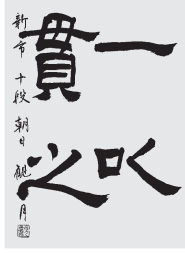 一以
貫之
新市 十段 朝日 観月